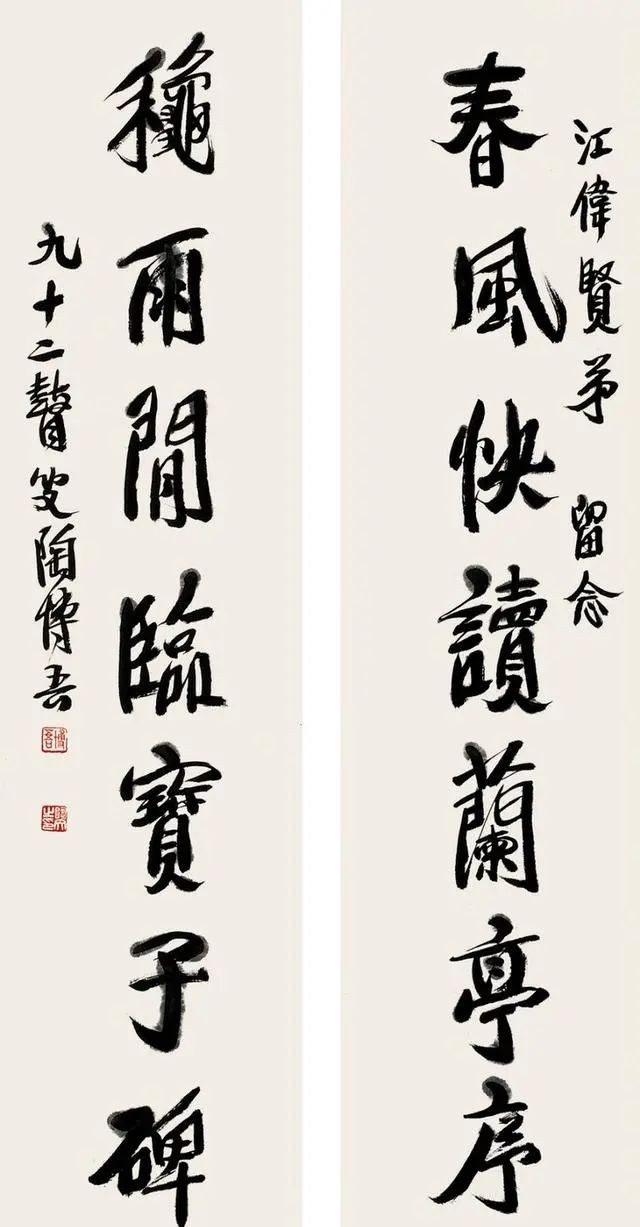 江偉賢弟 留念
春風快讀蘭亭序
龝雨閒臨寶子碑
九十二瞽叟陶博吾
博吾